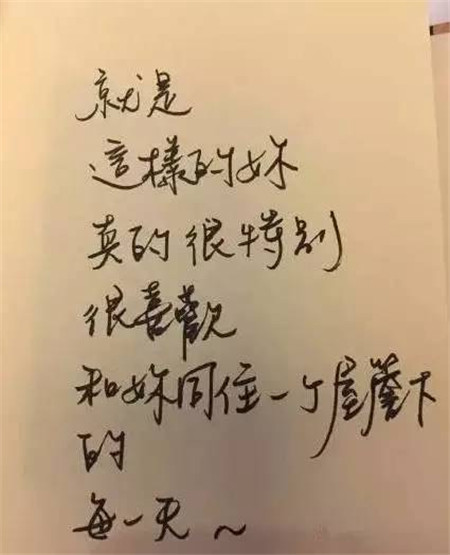 就是
這樣的妳
真的很特別
很喜歡
和妳同住一个屋簷下
的
每一天～